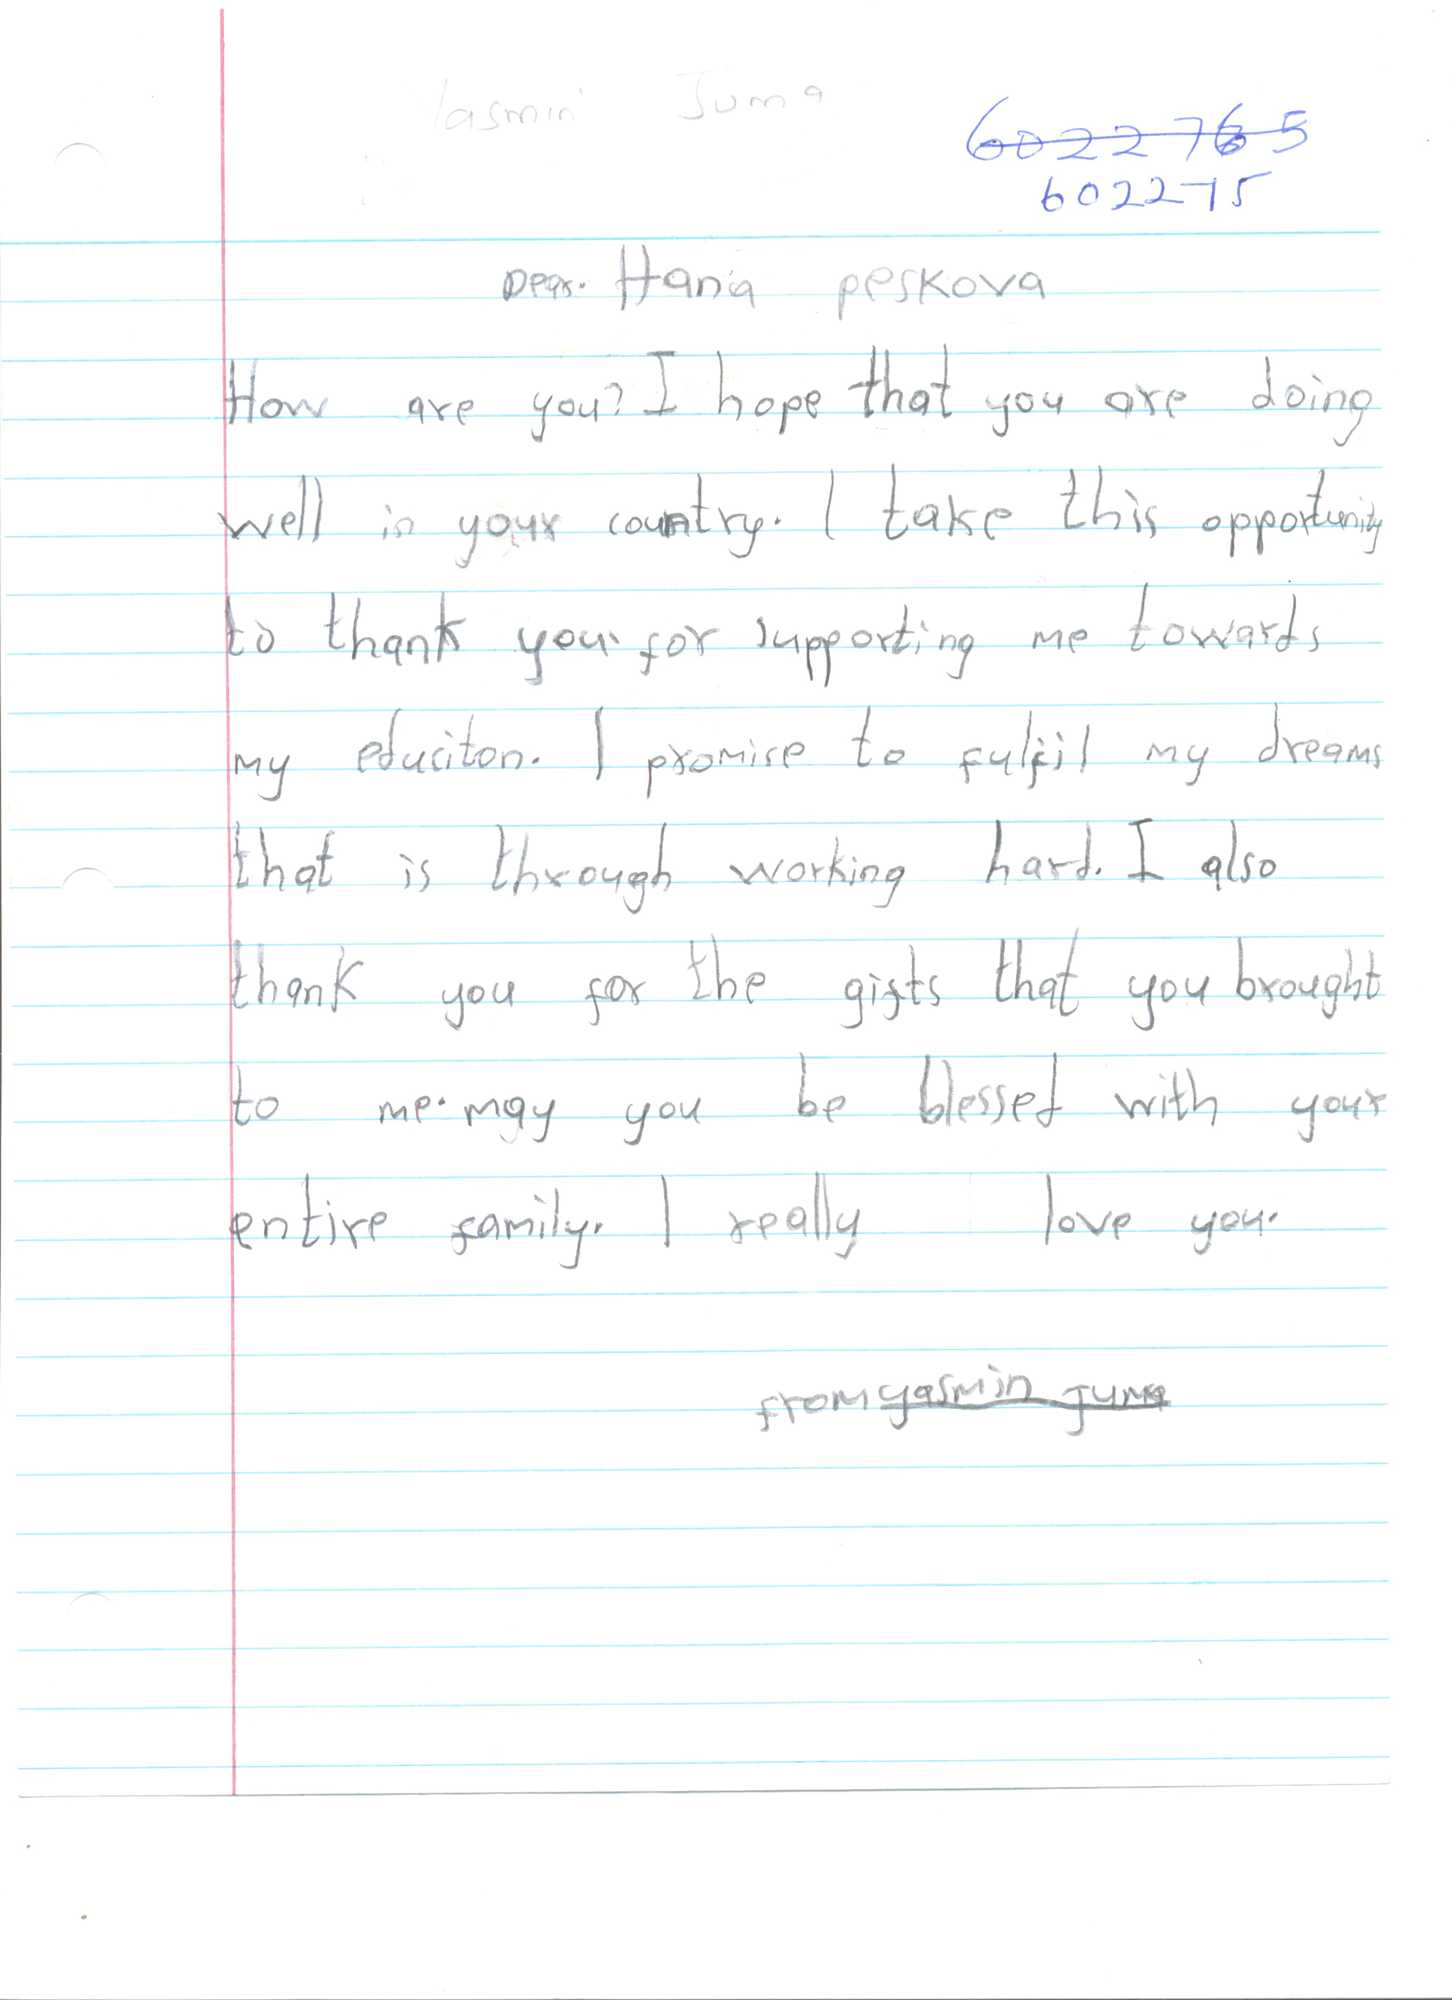 Yasmin Juma
6022765
602275
Dear. Hana peskova
How are you? I hope that you are doing
well in your country. I take this opportunity
to thank you. for supporting me towards
my educiton. I promise to fulfil my dreams
that is through working hard. I also
thank you for the gifts that you brought
to me. may you be blessed with your
entire family. I really love you.
from yasmin Juma